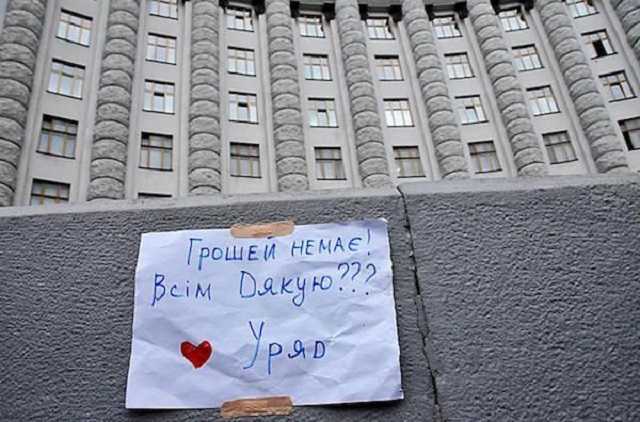 Грошей немає!
Всім Дякую???
Уряд